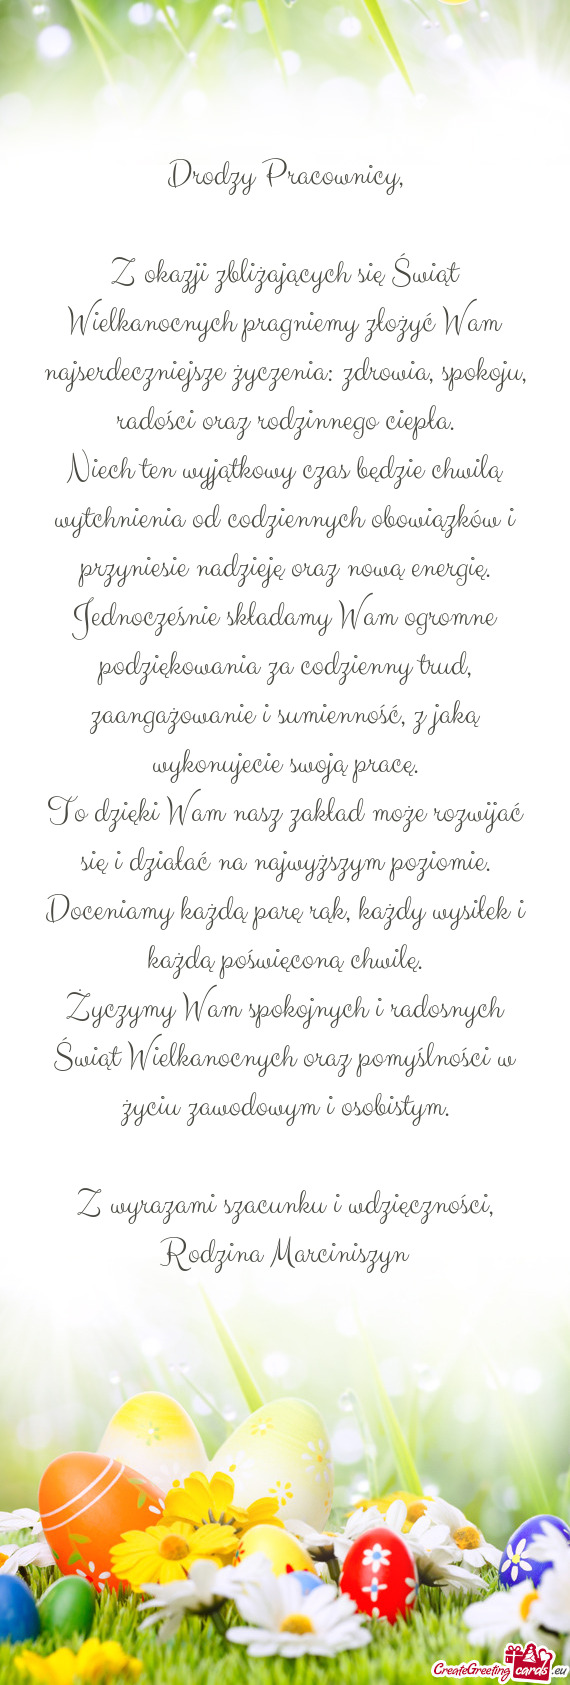 Drodzy Pracownicy,
Z okazji zbliżających się Świąt
Wielkanocnych pragniemy złożyć Wam
najserdeczniejsze życzenia: zdrowia, spokoju,
radości oraz rodzinnego ciepła.
Niech ten wyjątkowy czas będzie chwilą
wytchnienia od codziennych obowiązków i
przyniesie nadzieję oraz nową energię.
Jednocześnie składamy Wam ogromne
podziękowania za codzienny trud,
zaangażowanie i sumienność, z jaką
wykonujecie swoją pracę.
To dzięki Wam nasz zakład może rozwijać
się i działać na najwyższym poziomie.
Doceniamy każdą parę rąk, każdy wysiłek i
każdą poświęconą chwilę.
Życzymy Wam spokojnych i radosnych
Świąt Wielkanocnych oraz pomyślności w
życiu zawodowym i osobistym.
Z wyrazami szacunku i wdzięczności,
Rodzina Marciniszyn
CreateGreetingcards.eu